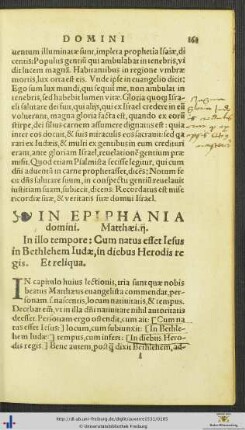 DOMINI 168
uentum illuminatæ sunt, impleta prophetia Isaiæ, di
centis: Populus gentiū qui ambulabat in tenebris, vi
dit lucem magnā. Habitantibus in regione vmbræ
mortis, lux orta est eis. Vnde ipse in euangelio dicit:
Ego sum lux mundi, qui sequitur me, non ambulat in
tenebris, sed habebit lumen vitæ. Gloria quoq Isra-
elis salutare dei fuit, quia ijs, qui ex Israel credere in eū
voluerunt, magna gloria facta est, quando ex eorū
stirpe dei filius carnem assumere dignatus est: quia
inter eos docuit, & suis miraculis eos
rari ex Iudæis, & multi ex gentibus in eum credituri
erant, ante gloriam Israel, reuelationē gentium præ
misit. Quod etiam Psalmista fecisse legitur, qui cum
dn̄i aduentum in carne prophetasset, dicēs: Notum fe
cit dn̄s salutare suum, in conspectu gentiū reuelauit
iustitiam suam, subiecit, dicens. Recordatus est mise
ricordiæ suæ, & veritatis suæ domui Israel.
IN EPIPHANIA
domini. Matthæi.ij.
In illo tempore: Cum natus esset Iesus
in Bethlehem Iudæ, in diebus Herodis re
gis. Et reliqua.
IN capitulo huius lectionis, tria sunt quæ nobis
beatus Matthæus euangelista commendat, per-
sonam .s. nascentis, locum natiuitatis, & tempus.
Decebat em̄, vt in illa dn̄i natiuitate nihil autoritatis
deesset. Personam ergo ostendit, cum ait: [Cum na-
tus esset Iesus] locum, cum subiunxit: [In Bethle-
hem Iudæ] tempus, cum infert: [In diebus Hero-
dis regis.] Bene autem, postq̄ dixit Bethlehem, ad-
http://dl.ub.uni-freiburg.de/diglit/
© Universitätsbibliothek Freiburg